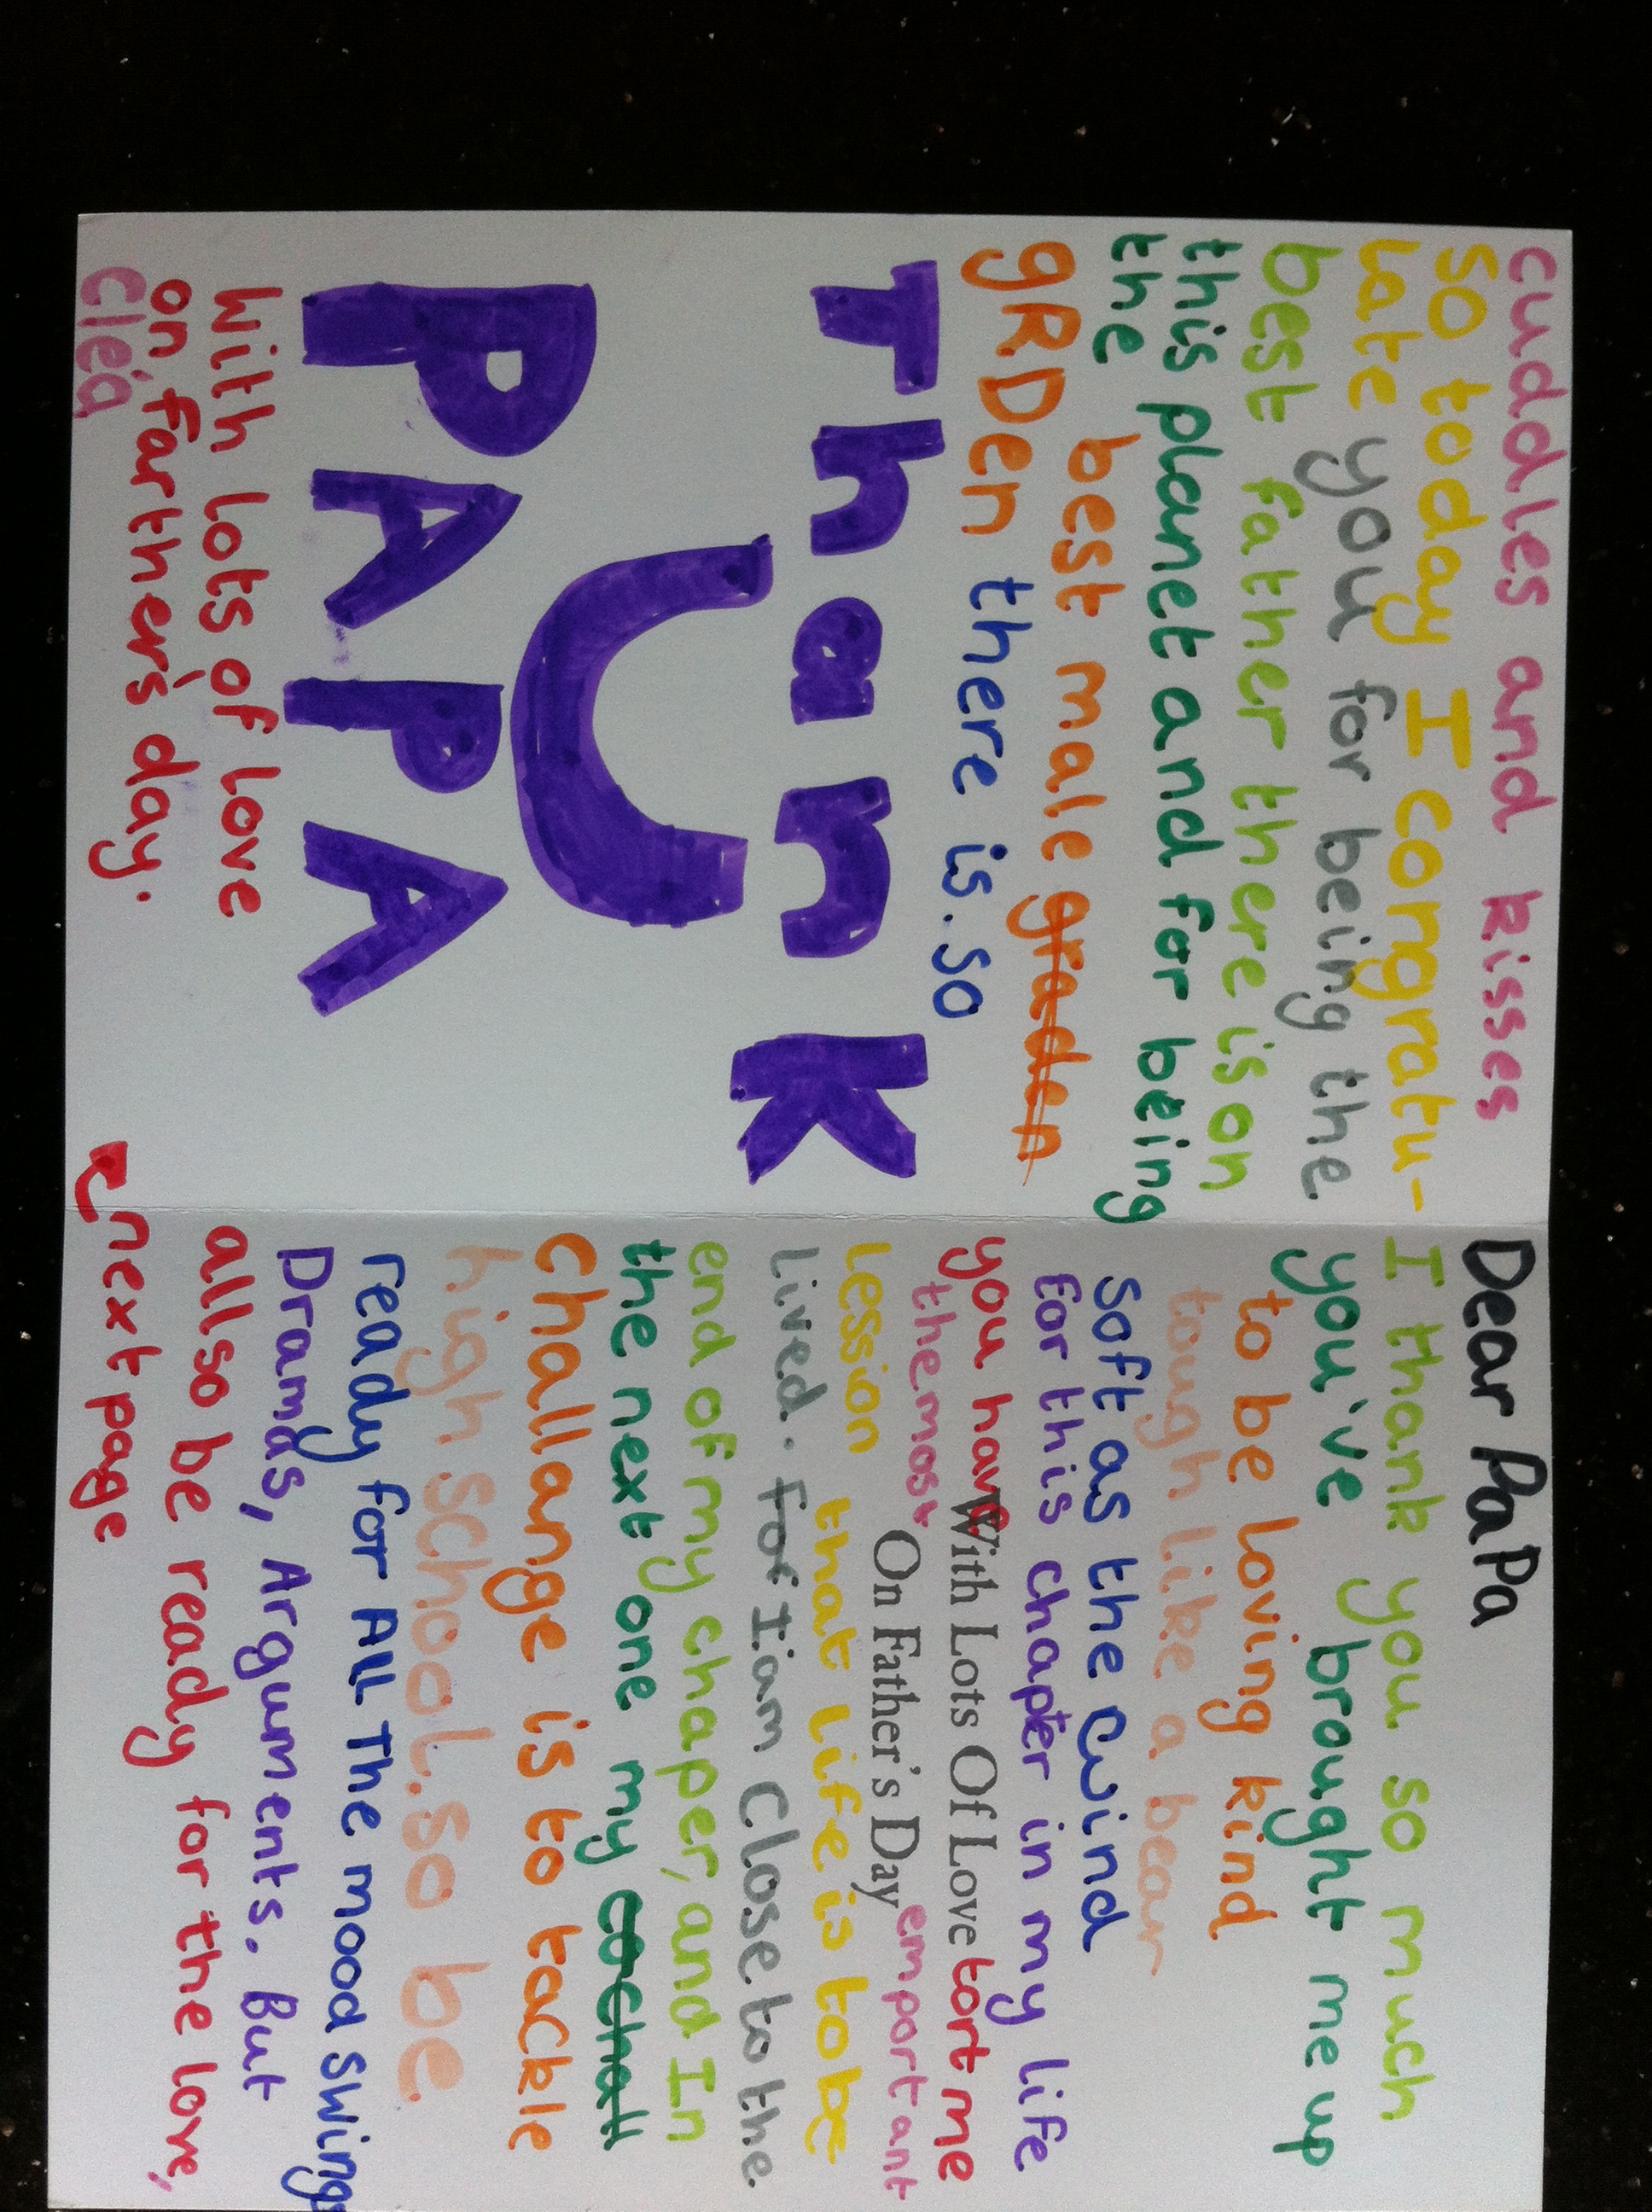 Dear PaPa
I thank you so much
you've brought me up
to be loving kind
tough like a bear
soft as the wind
For this chapter in my life
you have With Lots Of Love tort me
the most On Father's Day emportant
Lession that life is to be
Lived. For I am Close to the
end of my chaper, and In
the next one my cochall
challange is to tackle
high school. so be
ready for ALL The mood swings
Dramas, Arguments. But
allso be ready for the love,
next page
cuddles and kisses
So today I congratu-
late you for being the
best father there is on
this planet and for being
the best male graden
gRDen there is. so
Thank
U
PAPA
with lots of love
on farther's day.
Clea